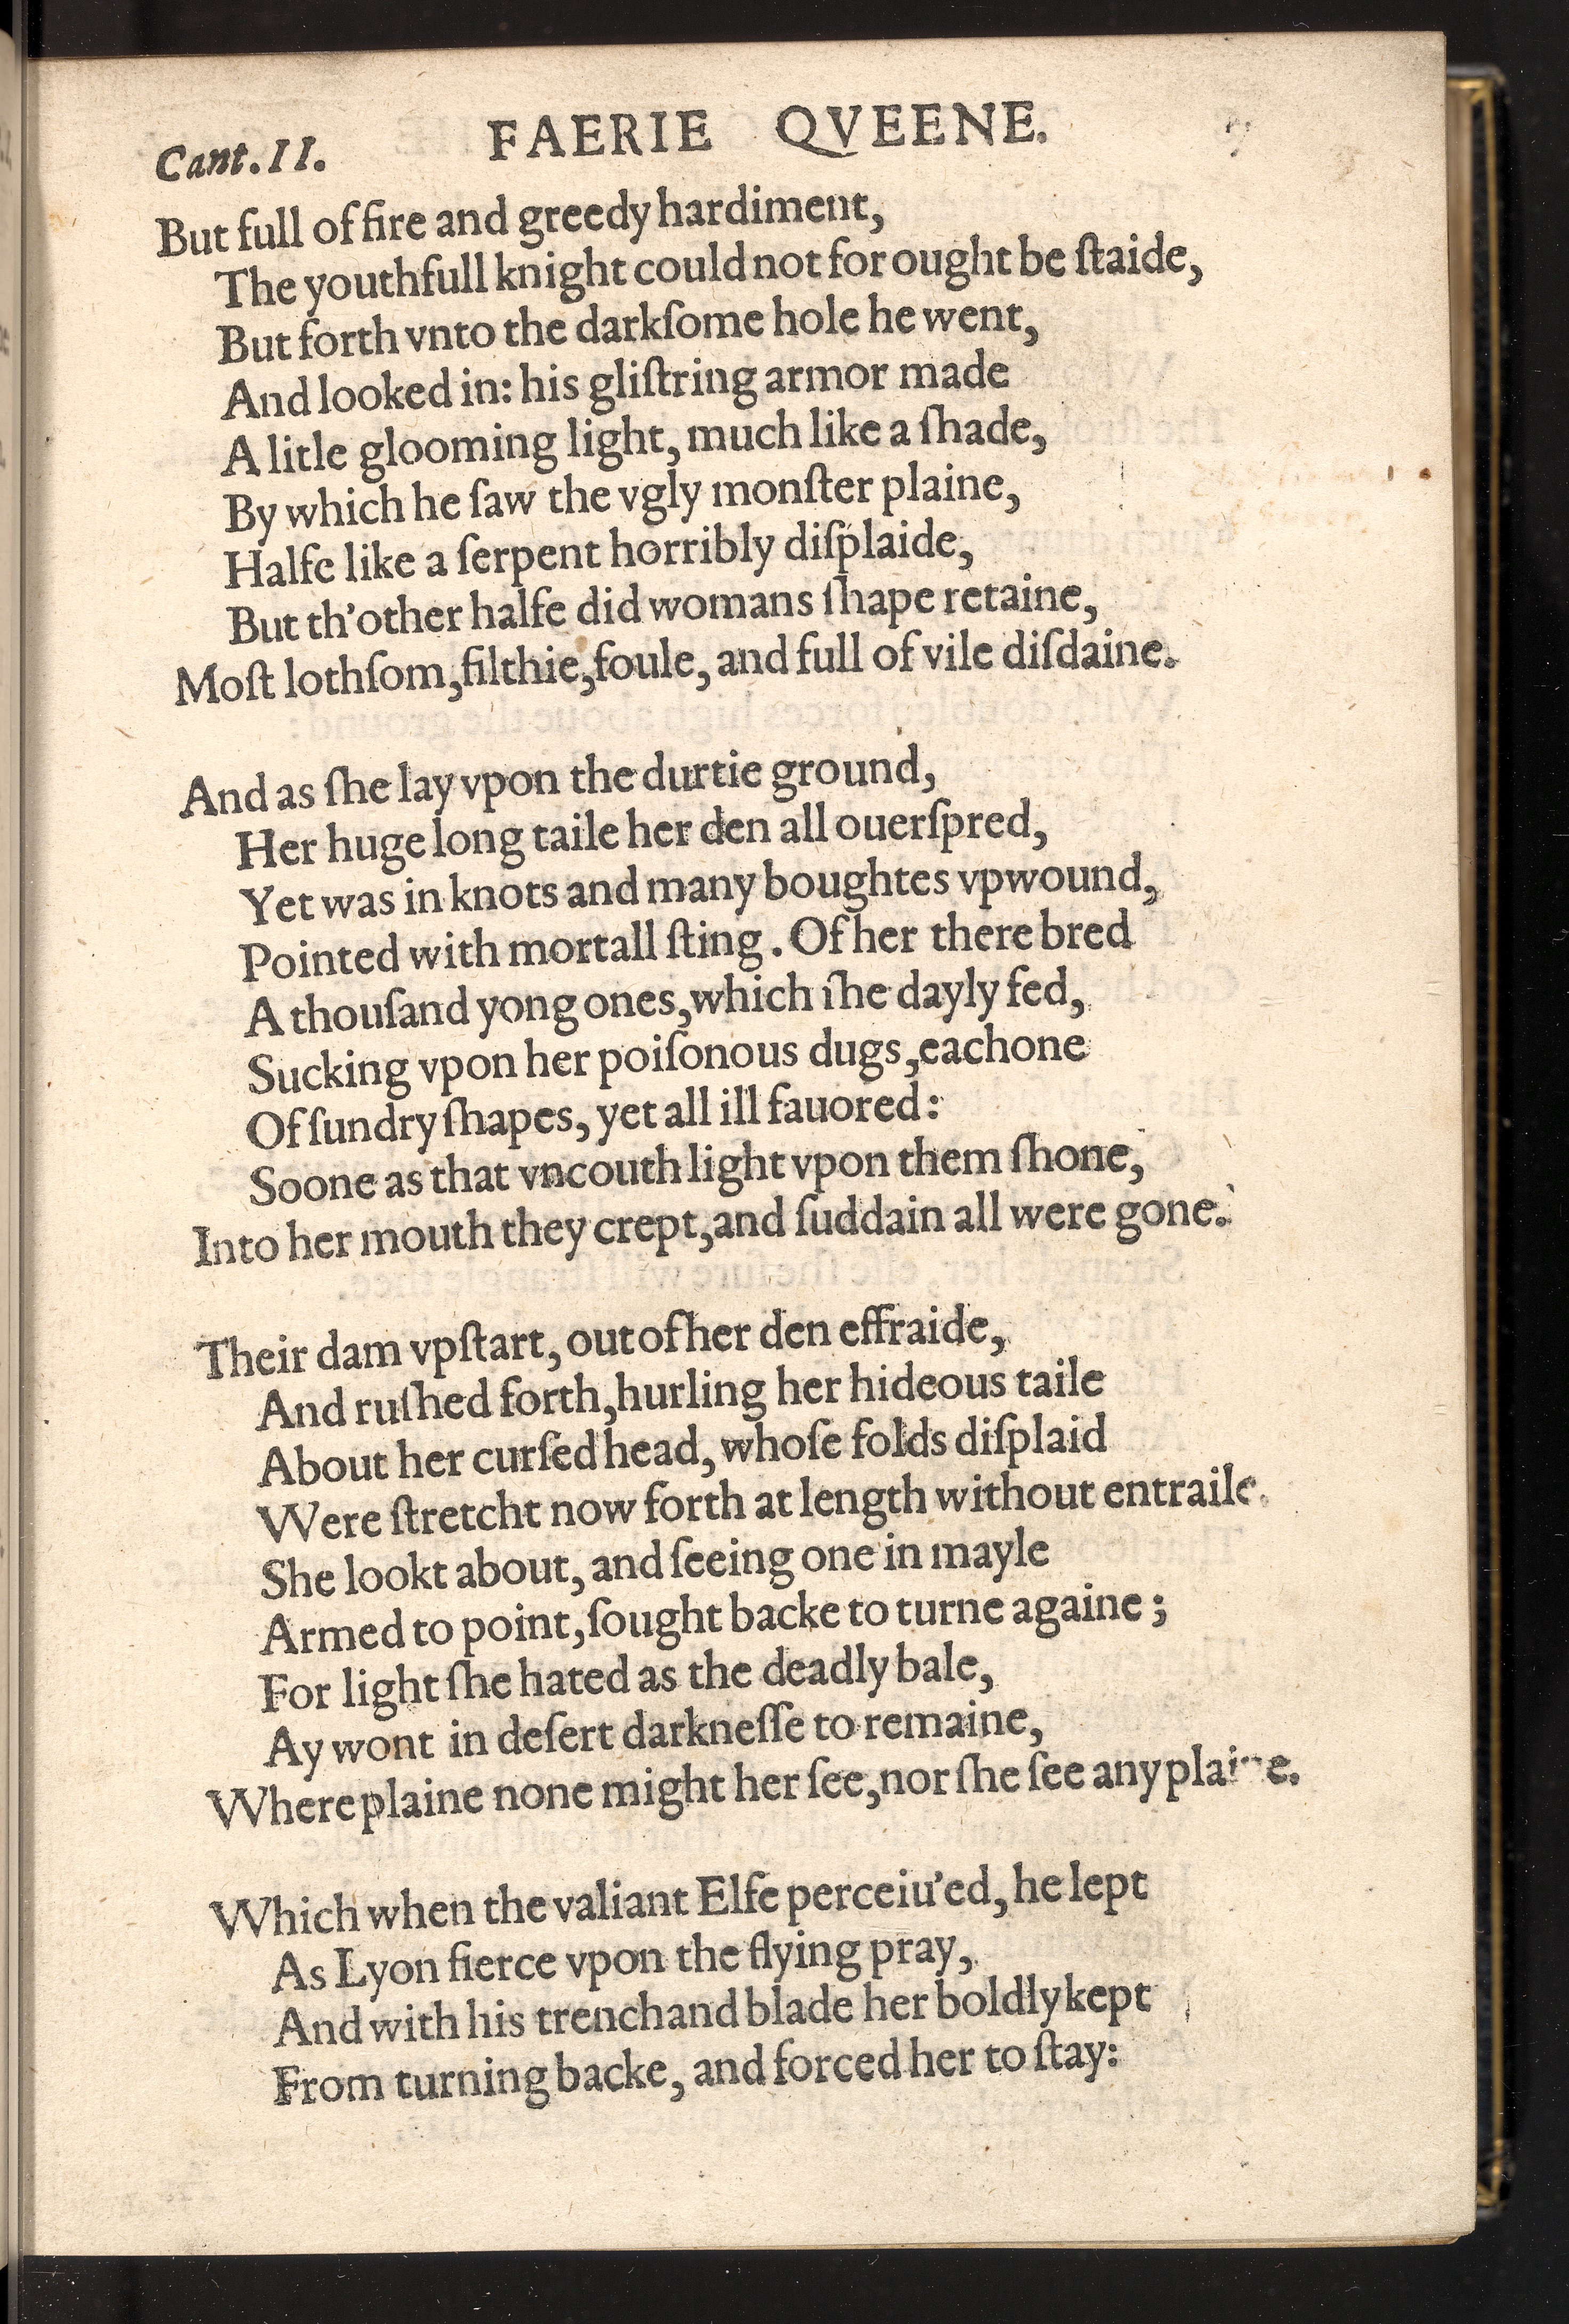 Cant.II.
FAERIE QVEENE.
But full of fire and greedy hardiment,
The youthfull knight could not for ought be ſtaide,
But forth vnto the darkſome hole he went,
And looked in: his gliſtring armor made
A litle glooming light, much like a ſhade,
By which he ſaw the vgly monſter plaine,
Halfe like a ſerpent horribly diſplaide,
But th'other halfe did womans ſhape retaine,
Moſt lothſom, filthie, foule, and full of vile diſdaine.
And as ſhe lay vpon the durtie ground,
Her huge long taile her den all ouerſpred,
Yet was in knots and many boughtes vpwound,
Pointed with mortall ſting. Of her there bred
A thouſand yong ones, which ſhe dayly fed,
Sucking vpon her poiſonous dugs, eachone
Of ſundry ſhapes, yet all ill fauored:
Soone as that vncouth light vpon them ſhone,
Into her mouth they crept, and ſuddain all were gone.
Their dam vpſtart, out of her den effraide,
And ruſhed forth, hurling her hideous taile
About her curſed head, whoſe folds diſplaid
Were ſtretcht now forth at length without entraile.
She lookt about, and ſeeing one in mayle
Armed to point, ſought backe to turne againe;
For light ſhe hated as the deadly bale,
Ay wont in deſert darkneſſe to remaine,
Where plaine none might her ſee, nor ſhe ſee any plaine.
Which when the valiant Elfe perceiu'ed, he lept
As Lyon fierce vpon the flying pray,
And with his trenchand blade her boldly kept
From turning backe, and forced her to ſtay: